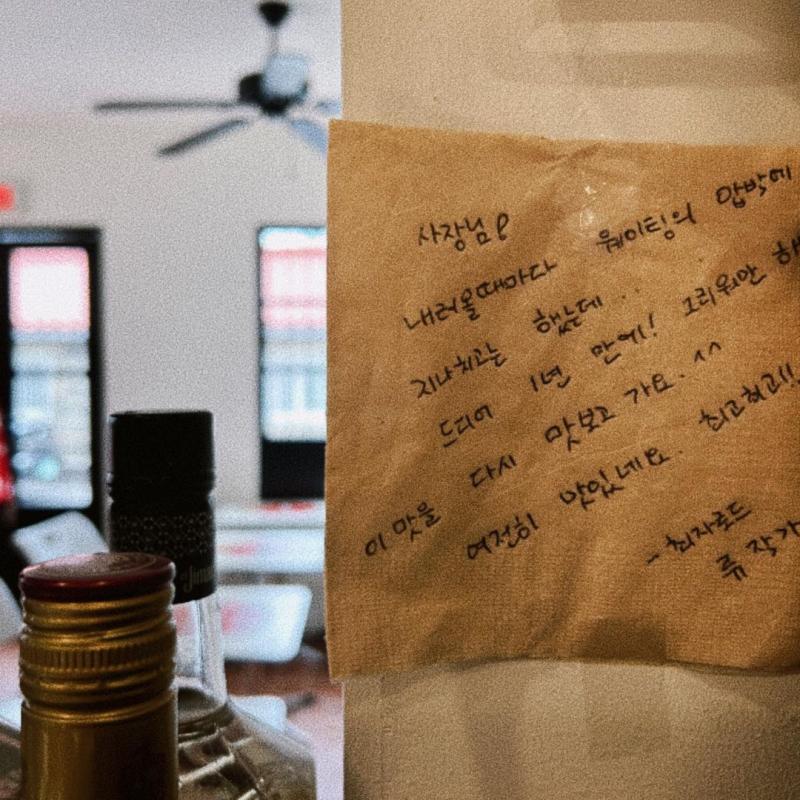 사장님!
내려올때마다 웨이팅의 압박에
지나치고는 했는데..
드디어 1년 만에! 그리워만
이 맛을 다시 맛보고 가요. ^^
여전히 맛있네요. 최고최고!!
- 최자로드
류작가